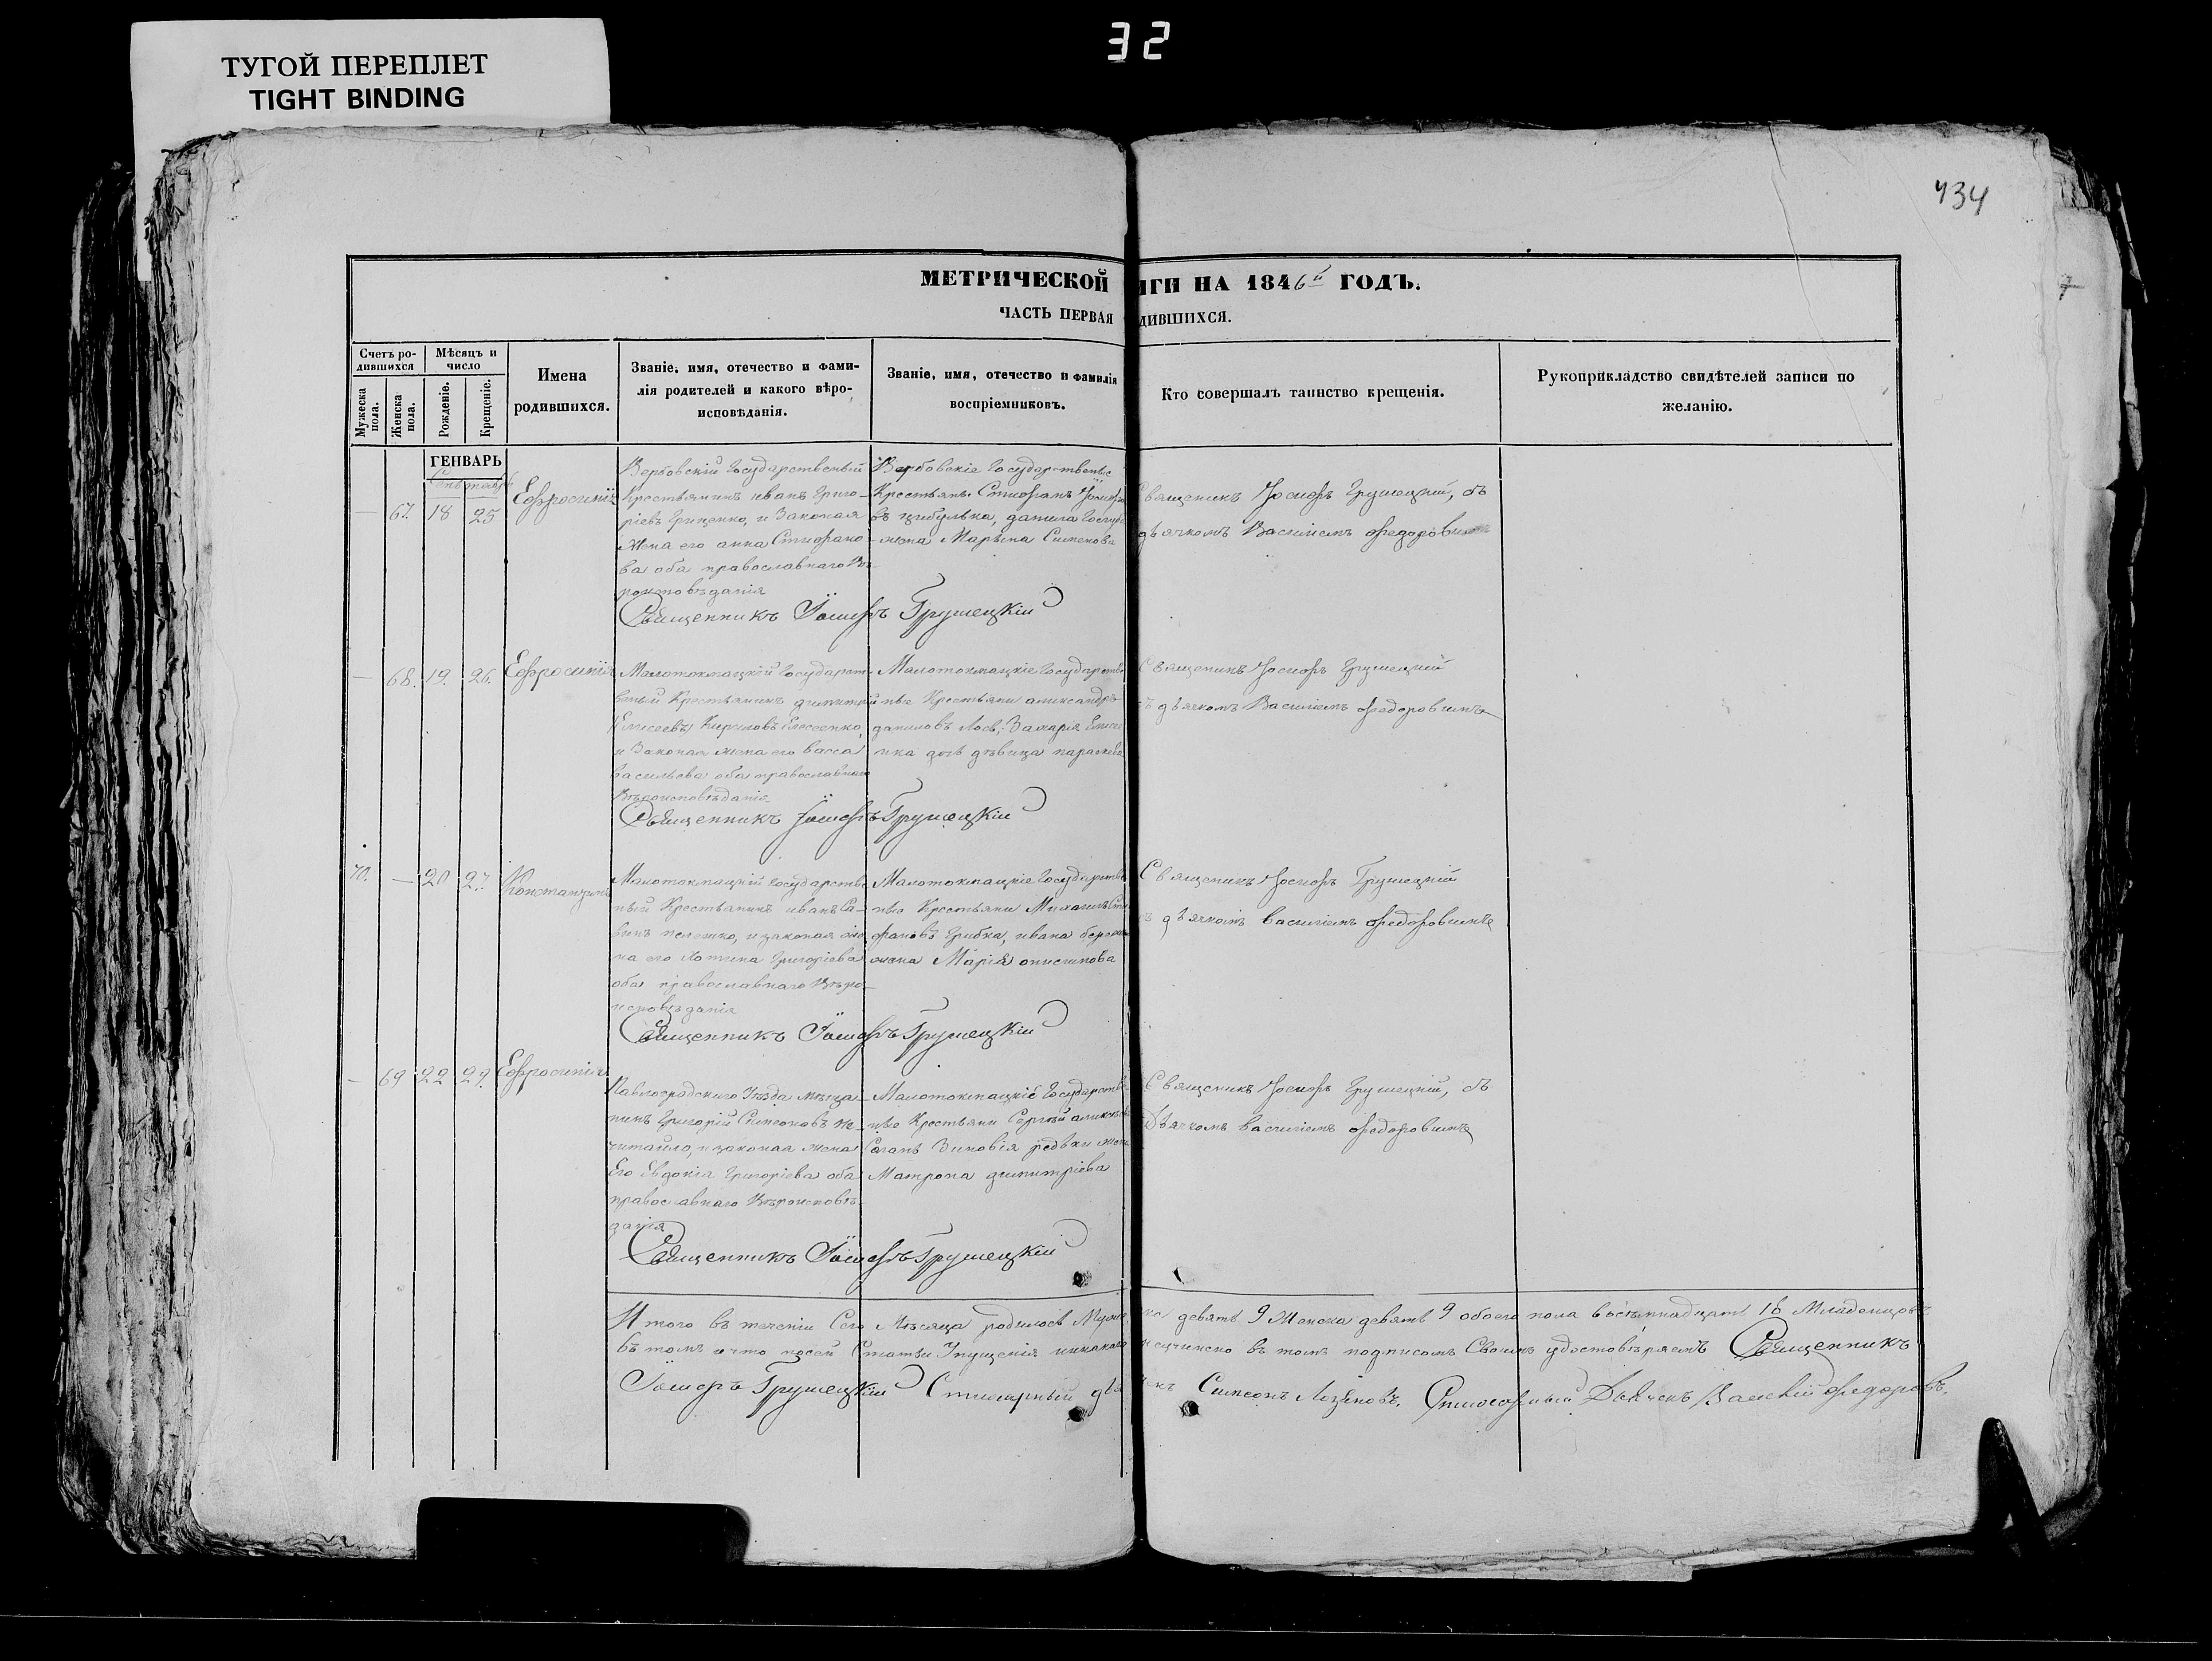 32
ТУГОЙ ПЕРЕПЛЕТ
TIGHT BINDING
434
МЕТРИЧЕСКОЙ ИГИ НА 1846й ГОДЪ.
ЧАСТЬ ПЕРВАЯ ДИВШИХСЯ.
Счетъ ро-
дившихся
Мужеска пола.
Женска пола.
Мѣсяцъ и
число
Рожденіе.
Крещеніе.
Имена
родившихся.
Званіе, имя, отечество и фами-
лія родителей и какого вѣро-
исповѣданія.
Званіе, имя, отечество и фамилія
воспріемниковъ.
Кто совершалъ таинство крещенія.
Рукоприкладство свидѣтелей записи по
желанію.
ГЕНВАРЬ
Сентябрь
— 67. 18 25 Ефросинія
Вербовскій Государственый
Крестьянинъ иванъ Григо-
ріевъ Гриценко, и Законая
жена его анна Стефано-
ва оба православнаго Вѣ-
роисповѣданія
Вербовскіе Государственые
Крестьянъ Стефанъ Іосифо
въ цибулька, данила
жена Марѳа Симеонова
Священикъ Іосифъ Грушецкій, съ
дьячкомъ Василіемъ Федоровимъ
Священникъ Іосифъ Грушецкій
— 68. 19. 26. Ефросинія
Малотокмацкій Государст-
веный Крестьянинъ димитрій
(Елисеевъ) Кириловъ Елесеенко,
и Законая жена его васса
васильева оба православнаго
Вѣроисповѣданіе
Малотокмацкіе Государстве
ные Крестьяни александръ
даниловъ Лось, Захарія
дочь дѣвица параскева
Священикъ Іосифъ Грушецкій
съ дьячкомъ Василіемъ Федоровимъ
Священникъ Іосифъ Грушецкій
70. — 20 27. Константинъ
Малотокмацкій Государстве
ный Крестьянинъ иванъ Са-
винъ и законая же
на его Григоріева
оба православнаго Вѣро-
исповѣданія
Малотокмацкіе Государстве
ные Крестьяни Михаилъ Сте
фановъ Грибка, ивана
жена Марія онисимова
Священикъ Іосифъ Грушецкій
съ дьячкомъ василіемъ Федоровимъ
Священникъ Іосифъ Грушецкій
— 69 22 29. Ефросинія
Павлоградскаго Уѣзда мѣща-
нинъ Григорій Симеоновъ не-
читайло, и законая жена
Его Евдокія Григоріева оба
православнаго Вѣроисповѣ-
данія
Малотокмацкіе Государстве
ные Крестьяни Сергѣй алексѣев
Саганъ Зиновія редьки жена
Матрона димитріева
Священикъ Іосифъ Грушецкій, съ
Дьячкомъ василіемъ Федоровимъ
Священникъ Іосифъ Грушецкій
Итого въ теченіи Сего Мѣсяца родилось Муже ка девять 9 Женска девять 9 обоего пола восѣмнадцать 18 Младенцовъ
въ томъ и что посей Статьи Упущенія никакого неучинено въ томъ подписомъ Своимъ удостовѣряемъ Священникъ
Іосифъ Грушецкій Стихарный дья чекъ Симеонъ Лозяновъ. Дьячекъ Василій Федоровъ.